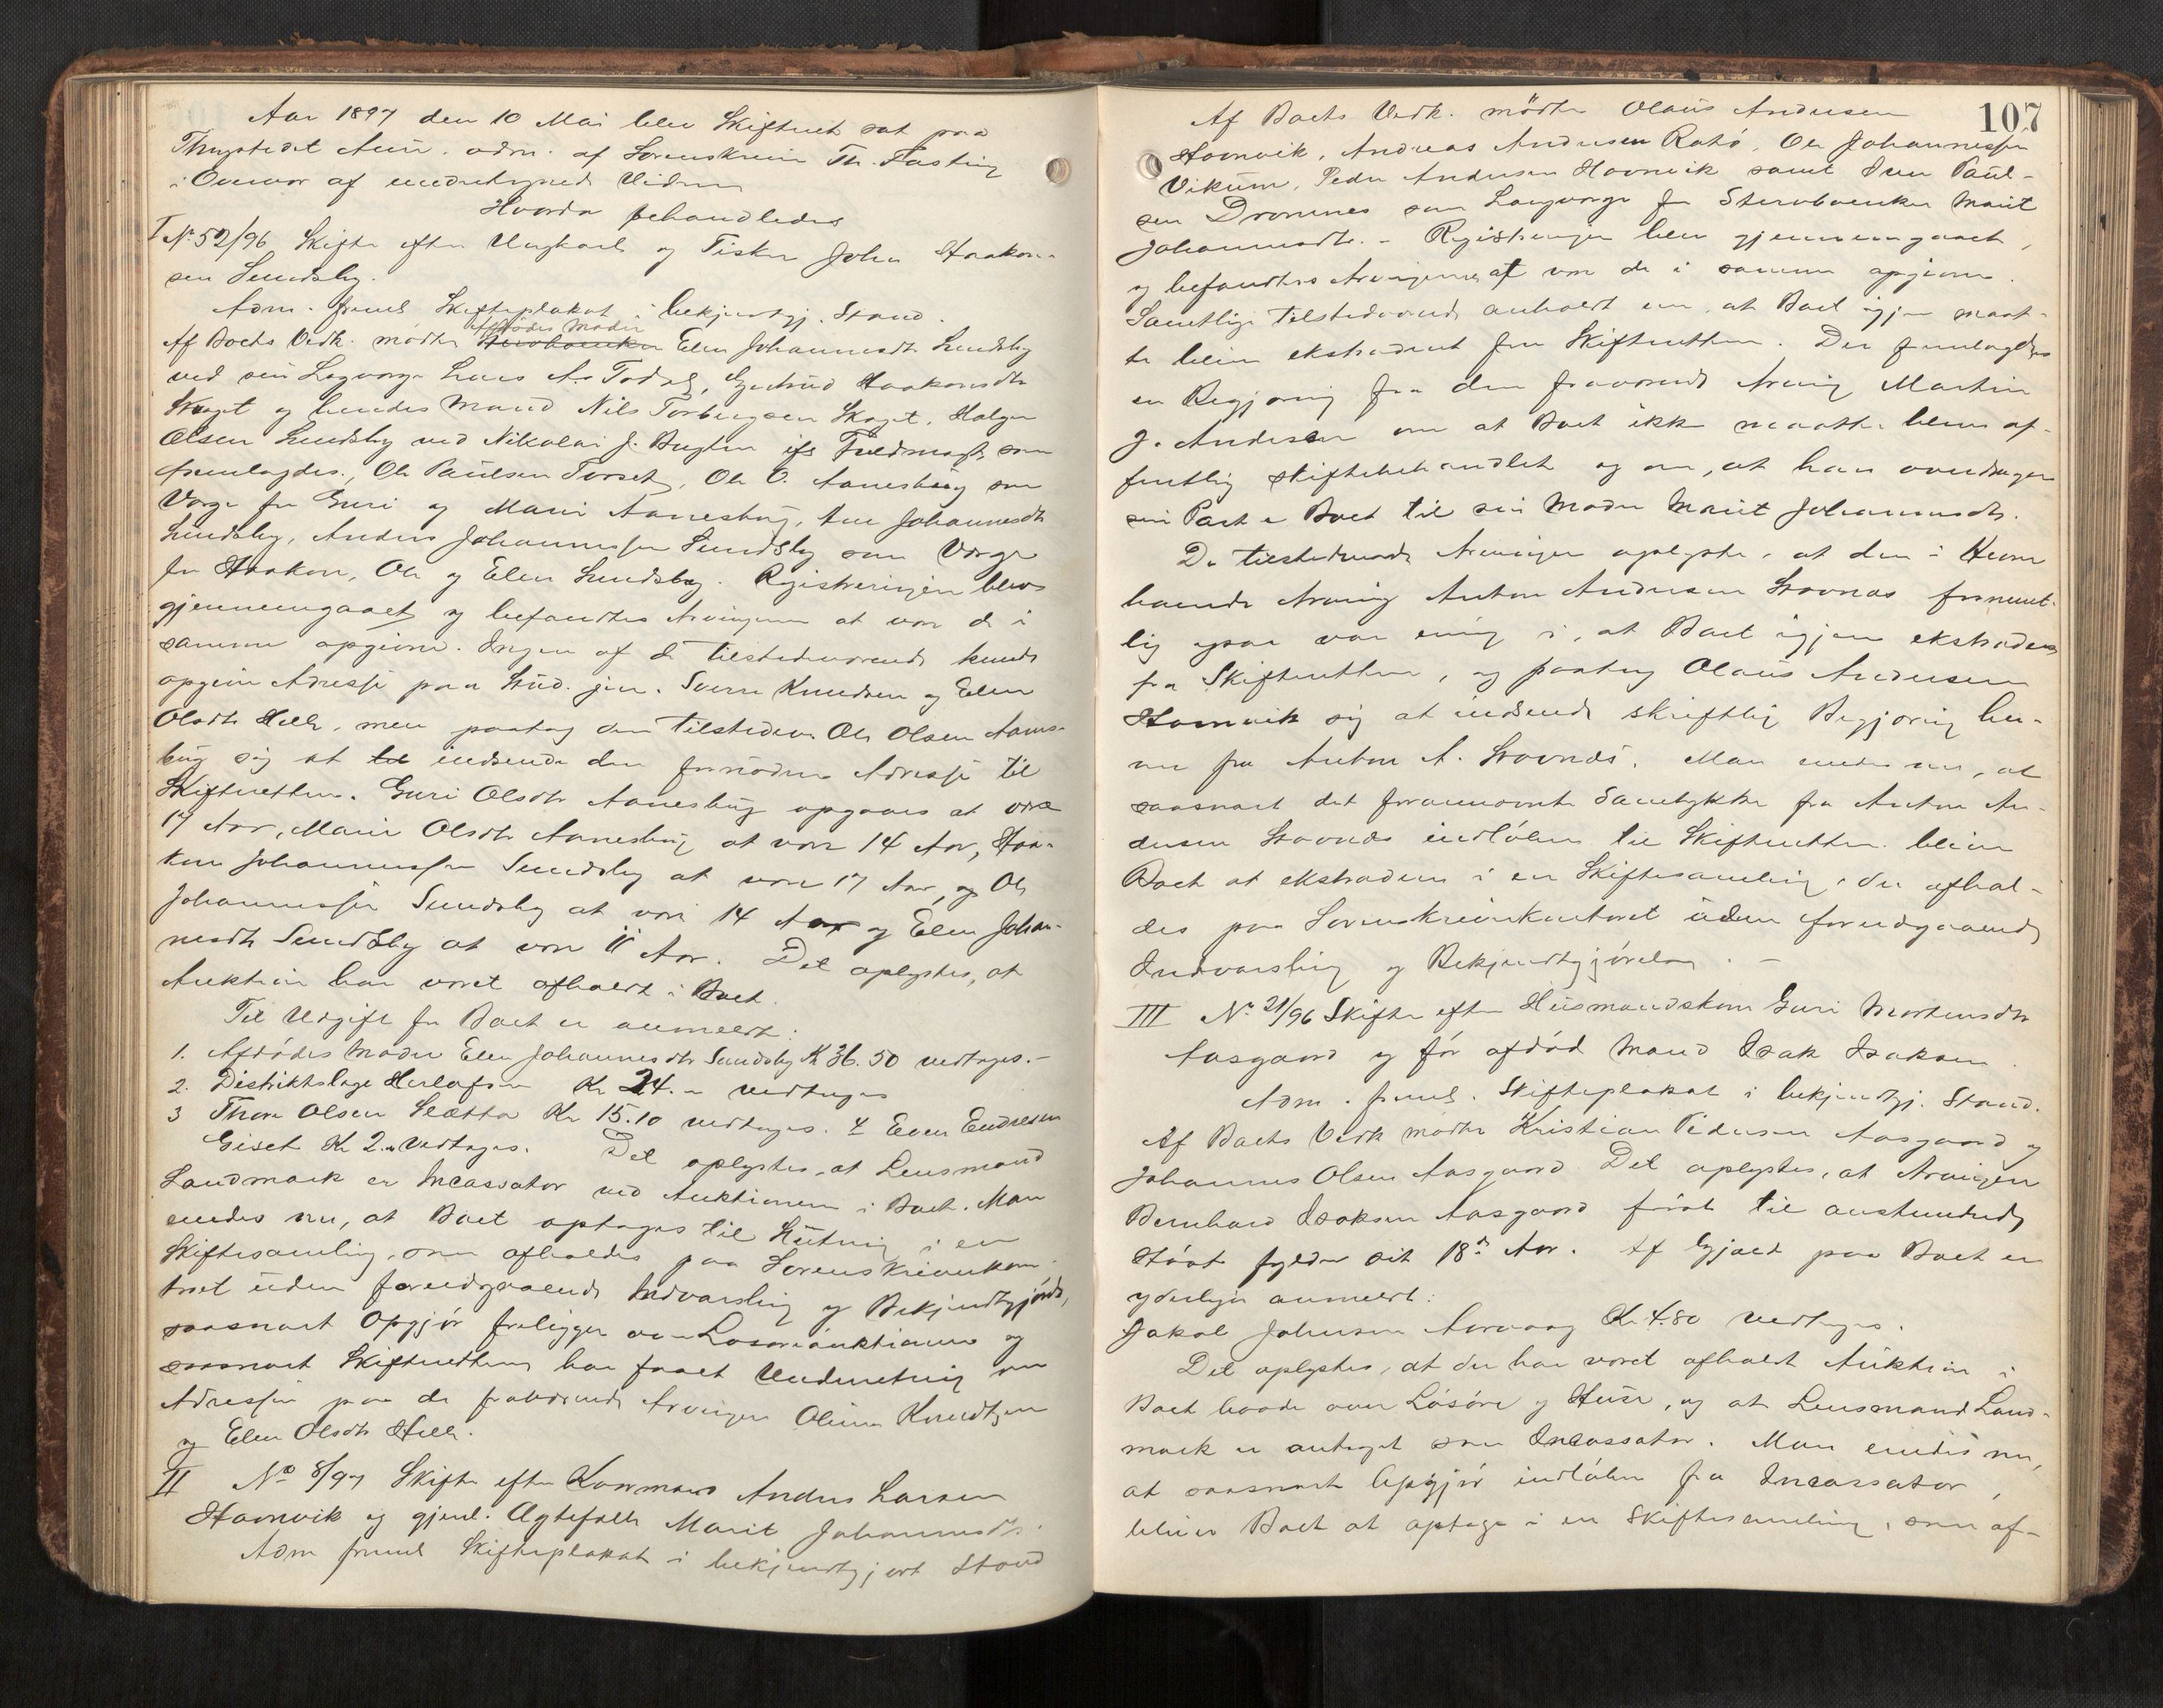 Aar 1897 den 10 Mai blev Skifteret sat paa
Thingstedet Aure. adm. af Sorenskriver Th. Fasting
i Overvær af undertegnede Vidner
Hvorda behandledes
I No 52/96 Skifte efter Ungkarl og Fisker John Haakon-
sen Sundsby.
Adm. freml. Skifteplakat i bekjendtgj. Stand.
Afdødes Moder
Af Boets Vedk. mødte Elen Johannesdtr Sundsby
ved sin Lagværge Lars A. Todal, Gjertrud Haakonsdtr
Skaget og hendes Mand Nils Torbergsen Skaget, Halgen
Olsen Sundsby ved Nikolai J. Buglen ifl Fuldmagt som
fremlagdes, Ole Paulsen Torset, Ole O. Aanesbug som
Værge for Guri og Marie Aanesbug, Ane Johannesdtr
Sundsby, Anders Johannessen Sundsby som Værge
for Haakon, Ole og Elen Sundsby. Registreringen blev
gjennemgaaet og befandtes Arvingerne at være de i
samme opgivne. Ingen af de tilstedeværende kunde
opgive Adresse paa Knudsen og Elen
Olsdtr Hell, men paatog den tilstedeværende Ole Olsen Aanes-
bug sig at indsende den fornødne Adresse til
Skifteretten. Guri Olsdtr Aanesbug opgaves at være
17 Aar, Marie Olsdtr Aanesbug at være 14 Aar, Haa-
kon Johannessen Sundsby at være 17 Aar, og Ole
Johannessen Sundsby at være 14 Aar og Elen Johan-
nesdtr Sundsby at være 11 Aar. Det oplystes, at
Auktion har været afholdt i Boet.
Til Udgift for Boet er anmeldt:
1. Afdødes Moder Elen Johannesdtr Sundsby Kr 36.50 vedtages.-
2. Distriktslæge Herlofsen Kr 24.- vedtages
3 Thore Olsen Slætta Kr 15.10 vedtages. 4 Even Endresen
Giset Kr 2.- Vedtages. Det oplystes, at Lensmand
Landmark er Incassator ved Auktionen i Boet. Man
enedes nu, at Boet optages til Slutning i en
Skiftesamling, som afholdes paa Sorenskriverkon-
toret uden forudgaaende Indvarsling og Bekjendtgjørelse,
saasnart Opgjør foreligger over Løsøreauktionen og
saasnart Skifteretten har faaet Underretning om
Adressen paa de fraværende Arvinger Knudsen
og Elen Olsdtr Hell.
II No 8/97 Skifte efter Kaarmand Anders Larsen
Havnvik og gjenl. Ægtefælle Marit Johannesdtr.
Adm freml Skifteplakat i bekjendtgjort Stand
107
Af Boets Vedk. mødte Olaus Andersen
Havnvik, Andreas Andersen Rotø, Ole Johannessen
Vikum, Peder Andersen Havnvik samt Iver Paul-
sen Dromnes som Laugværge for Stervboenken Marit
Johannesdtr. - Registreringen blev gjennemgaaet,
og befandtes Arvingerne at være de i samme opgivne.
Samtlige tilstedeværende anholdt om, at Boet igjen maat-
te blive ekstraderet fra Skifteretten. Der fremlagdes
en Begjæring fra den fraværende Arving Martin
J. Andersen om at Boet ikke maatte blive of-
fentlig skiftebehandlet og om, at han overdrager
sin Part i Boet til sin Moder Marit Johannesdtr.
De tilstedeværende Arvinger oplyste, at den i Hevne
boende Arving Anton Andersen Stovnes formentlig
lig ogsaa var enig i, at Boet igjen ekstraderes
fra Skifteretten, og paatog Olaus Andersen
Havnvik sig at indsende skriftlig Begjæring her-
om fra Anton A. Stovnes. Man enedes om, at
saasnart det fornævnte Samtykke fra Anton An-
dersen Stovnes indløber til Skifteretten bliver
Boet at ekstradere i en Skiftesamling, der afhol-
des paa Sorenskriverkontoret uden forudgaaende
Indvarsling og Bekjendtgjørelse. -
III No 21/96 Skifte efter Husmandskone Guri Mortensdtr
Aasgaard og før afdød Mand Isak Isaksen
Adm. freml. Skifteplakat i bekjendtgj. Stand.
Af Boets Vedk mødte Kristian Pedersen Aasgaard og
Johannes Olsen Aasgaard Det oplystes, at Arvingen
Bernhard Isaksen Aasgaard først til anstundende
Høst fylder sit 18de Aar. Af Gjæld paa Boet er
yderligere anmeldt:
Jakob Johnsen Aarvaag Kr 4.80 vedtages.
Det oplystes, at der har været afholdt Auktion i
Boet baade over Løsøre og Huse, og at Lensmand Land-
mark er antaget som Incassator. Man enedes nu,
at saasnart Opgjør indløber fra Incassator,
bliver Boet at optage i en Skiftesamling, som af-